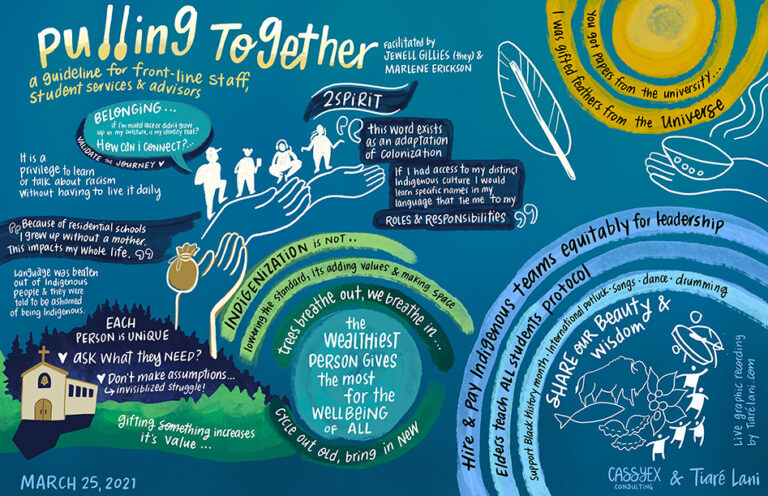 Pulling Together
a guideline for front-line staff,
student services & advisors
Facilitated by
JEWELL GILLIES (they) &
MARLENE ERICKSON
BELONGING...
if I'm mixed race or didn't grow
up in my culture, is my identity real?
HOW can I connect?...
VALIDATE the JOURNEY
It is a
privilege to learn
or talk about racism
without having to live it daily
Because of residential schools
I grew up without a mother.
This impacts my whole life.
Language was beaten
out of Indigenous
people & they were
told to be ashamed
of being Indigenous.
2SPIRIT
this word exists
as an adaptation
of Colonization
If I had access to my distinct
Indigenous culture I would
learn specific names in my
language that tie me to my
ROLES & RESPONSIBILITIES
You got papers from the university...
I was gifted feathers from the Universe
EACH
PERSON is UNIQUE
ASK WHAT they NEED?
Don't make assumptions...
invisiblized struggle!
gifting something increases
it's value...
INDIGENIZATION is not..
lowering the standard, Its adding values & making space
trees breathe out, we breathe in...
the
WEALTHIEST
PERSON GIVES
the most
for the
WELLBEING
OF ALL
cycle out old, bring in New
Hire & Pay Indigenous teams equitably for leadership
Elders teach ALL students Protocol
Support Black History month · International potluck · songs · dance · drumming
SHARE our Beauty &
wisdom
Live graphic recording
by Tiarélani.com
MARCH 25, 2021
CASSYEX
CONSULTING
& Tiaré Lani